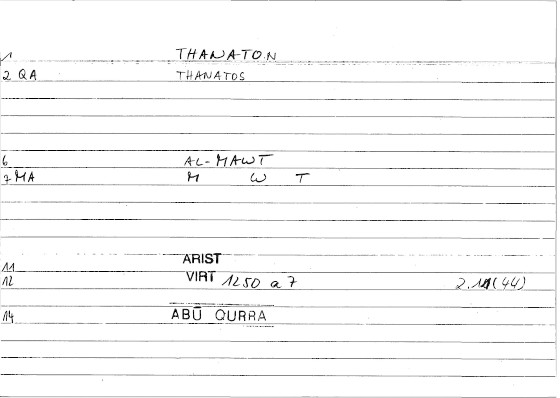 1 THANATON
2 QA THANATOS
6 AL-MAWT
7 MA M W T
11 ARIST
12 VIRT 1250 a 7 2.11(44)
14 ABŪ QURRA